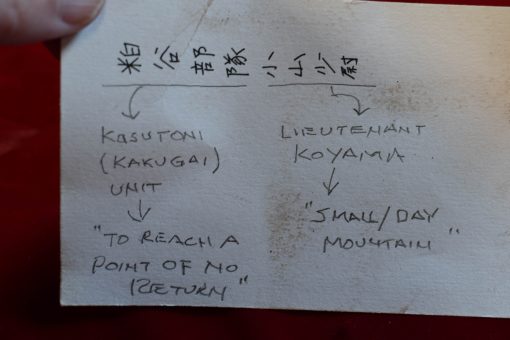 粕谷部隊 小山少尉
KASUTONI
(KAKUGAI)
UNIT
"TO REACH A
POINT OF NO
RETURN"
LIEUTENANT
KOYAMA
"SMALL/DAY
MOUNTAIN"